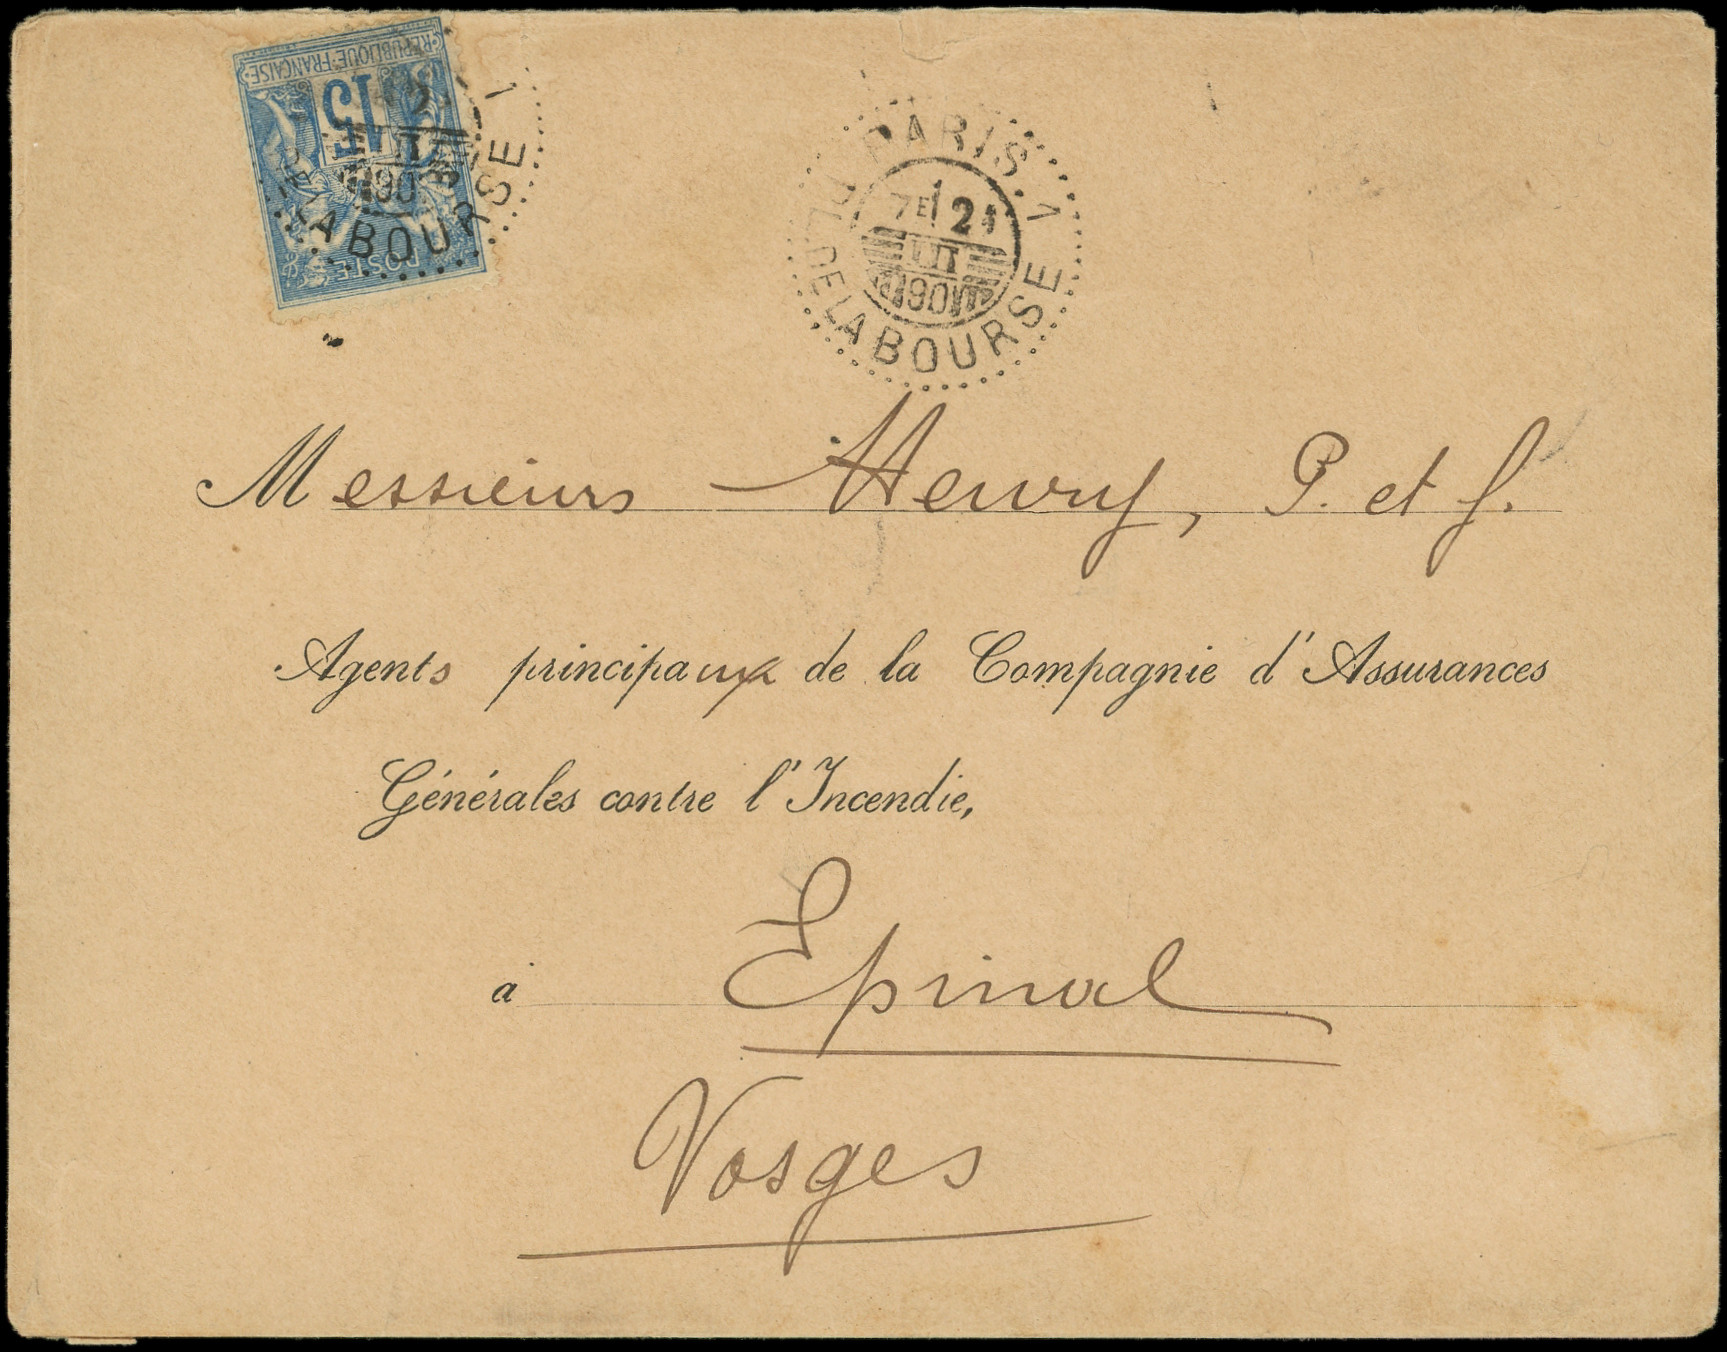 REPUBLIQUE FRANÇAISE
15
POSTE
LA BOURSE
90
PARIS. 1
PL. DE LA BOURSE
7E 21
90
Messieurs Henry, P. et J.
Agents principaux de la Compagnie d'Assurances
Générales contre l'Incendie,
à Epinal
Vosges